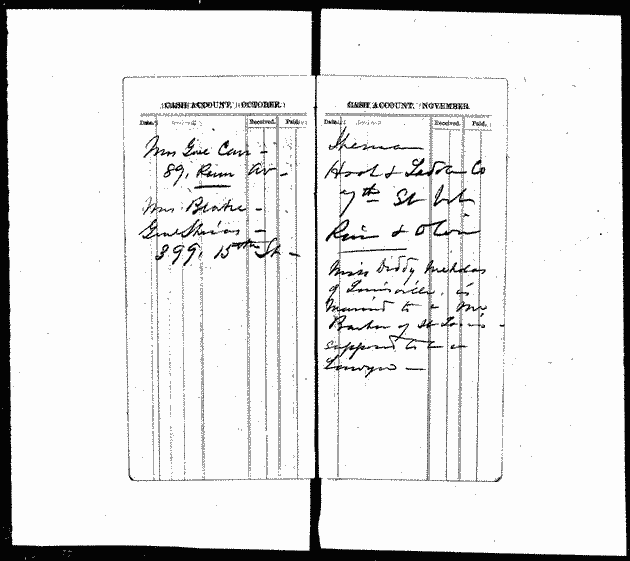 CASH ACCOUNT. OCTOBER.
Date. Received. Paid.
Mrs Geo Carr -
89, Penn Av -
Mrs Blake -
399, 15th St -
CASH ACCOUNT. NOVEMBER.
Date. Received. Paid.
Sherman
Hook & Ladder Co
7th St bet
Pine & Olive
Miss Diddy
of Louisville, is
Married to a Mr
Barker of St Louis -
supposed to be a
Lawyer -